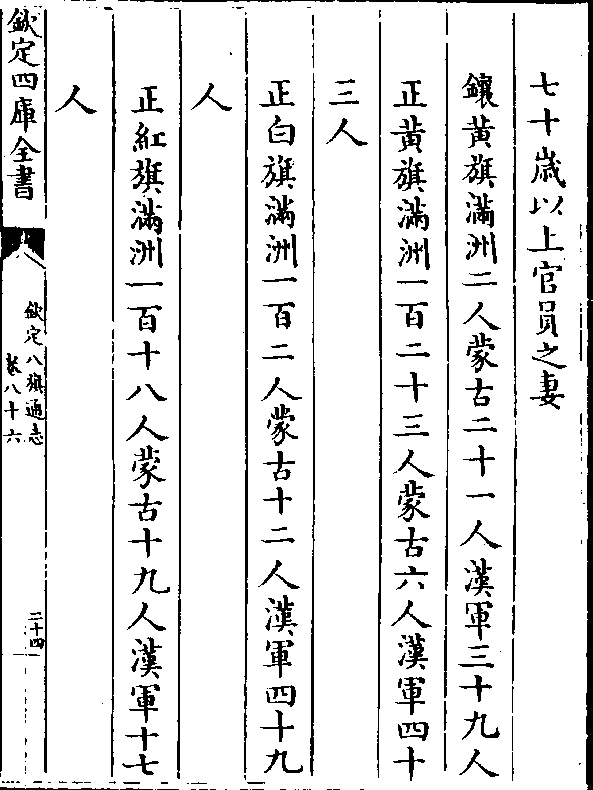 七十歲以上官員之妻
鑲黃旗滿洲二人蒙古二十一人漢軍三十九人
正黃旗滿洲一百二十三人蒙古六人漢軍四十
三人
正白旗滿洲一百二人蒙古十二人漢軍四十九
人
正紅旗滿洲一百十八人蒙古十九人漢軍十七
人
欽定四庫全書
欽定八旗通志
卷八十六
二十四